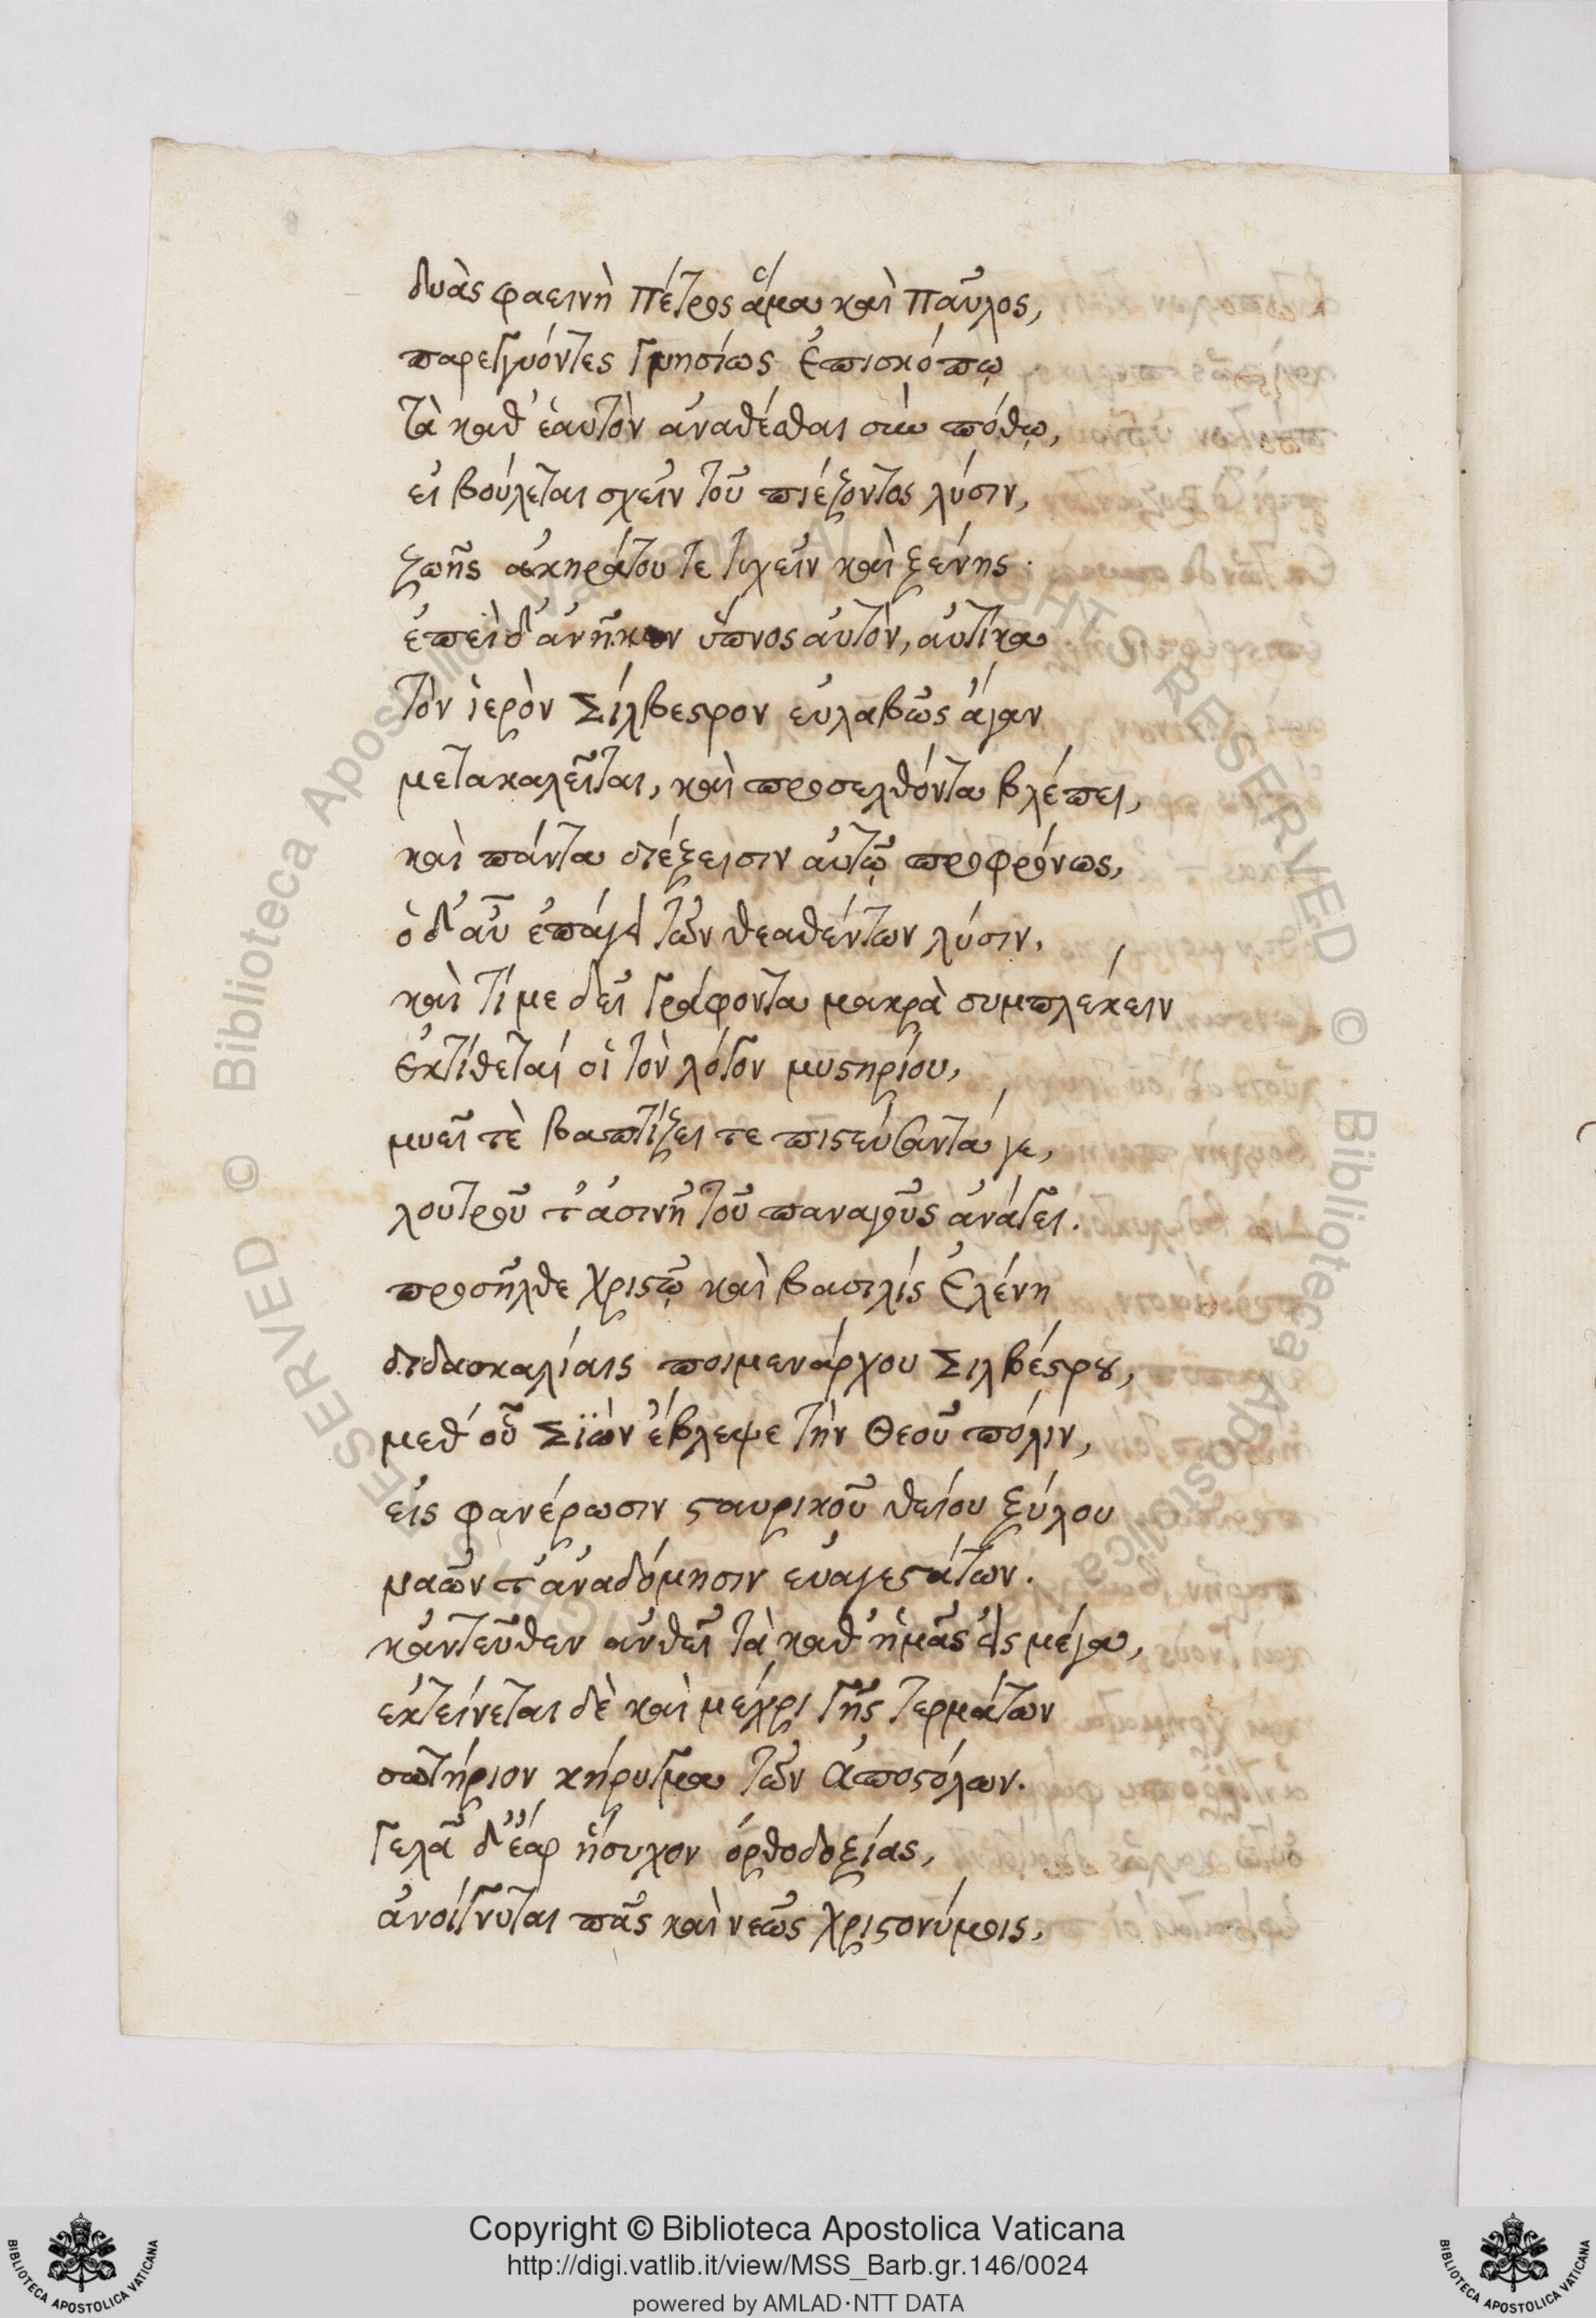 δυὰς φαεινὴ Πέτρος ἅμα καὶ Παῦλος,
παρεγγυόντες γνησίως ἐπισκόπῳ
τὰ καθ' ἑαυτὸν ἀναθέσθαι σὺν πόθῳ,
εἰ βούλεται σχεῖν τοῦ πιέζοντος λύσιν,
ζωῆς ἀκηράτου τε τυχεῖν καὶ ξένης.
ἐπεὶ δ' ἀνῆκεν ὕπνος αὐτὸν, αὐτίκα
τὸν ἱερὸν Σίλβεστρον εὐλαβῶς ἄγαν
μετακαλεῖται, καὶ προσελθόντα βλέπει,
καὶ πάντα διέξεισιν αὐτῷ προφρόνως,
ὁ δ' αὖ ἐπάγει τῶν θεαθέντων λύσιν.
καὶ τί με δεῖ γράφοντα μακρὰ συμπλέκειν
ἐκτίθεταί οἱ τὸν λόγον μυστηρίου,
μυεῖ τὲ βαπτίζει τε πιστεύσαντά γε,
λουτροῦ τ' ἀσινῆ τοῦ παναγοῦς ἀνάγει.
προσῆλθε Χριστῷ καὶ βασιλίς Ἑλένη
διδασκαλίαις ποιμενάρχου Σιλβέστρου,
μεθ' οὗ Σϊὼν ἔβλεψε τὴν Θεοῦ πόλιν,
εἰς φανέρωσιν σταυρικοῦ θείου ξύλου
ναῶν τ' ἀναδόμησιν εὐαγεστάτων.
κἀντεῦθεν ἀνθεῖ τὰ καθ' ἡμᾶς εἰς μέγα,
ἐκτείνεται δὲ καὶ μέχρι γῆς τερμάτων
σωτήριον κήρυγμα τῶν Ἀποστόλων.
γελᾷ δ' ἔαρ ἥσυχον ὀρθοδοξίας,
ἀνοίγνυται πᾶς καὶ νεὼς χριστονύμοις.
Copyright © Biblioteca Apostolica Vaticana
http://digi.vatlib.it/view/MSS_Barb.gr.146/0024
powered by AMLAD·NTT DATA